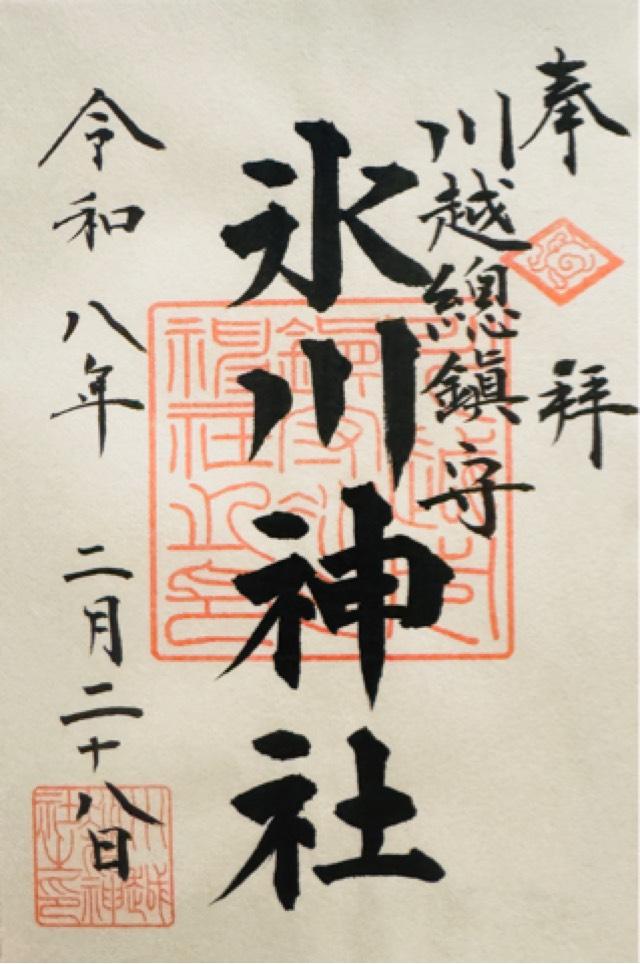 奉拝
川越總鎮守
氷川神社
令和八年二月二十八日